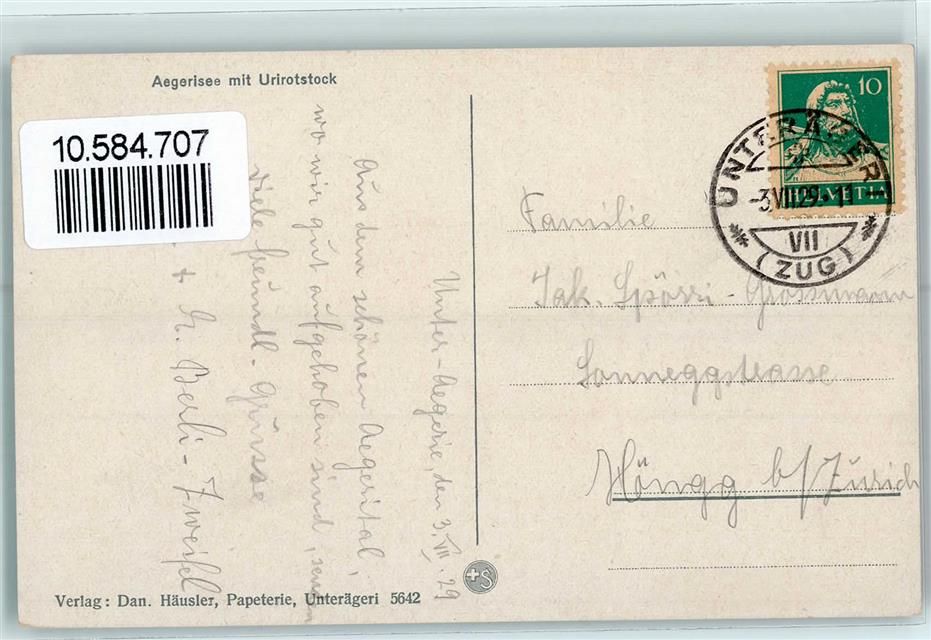 Aegerisee mit Urirotstock
10.584.707
10
HELVETIA
UNTERÄGERI
-3.VII.29.-11
VII
(ZUG)
Unter-Aegerie, den 3. VII. 29
Aus dem schönen Aegerital,
wo wir gut aufgehoben sind, senden
viele freundl. Grüsse
+ E. Berli-Zweifel
Familie
Jak. Spörri-Grossmann
Sonneggstrasse
Höngg b/Zürich
+S
Verlag: Dan. Häusler, Papeterie, Unterägeri 5642